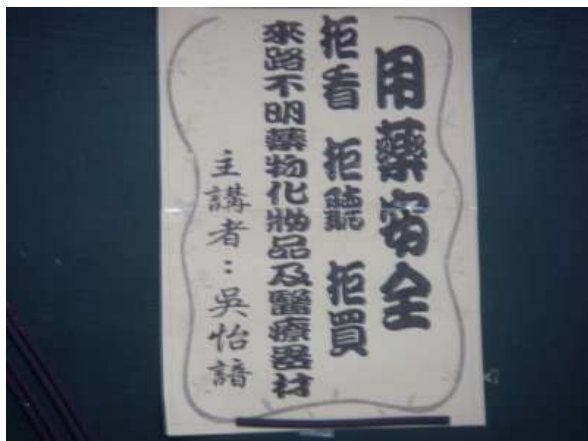 用藥安全
拒看 拒聽 拒買
來路不明藥物化妝品及醫療器材
主講者：吳怡諳